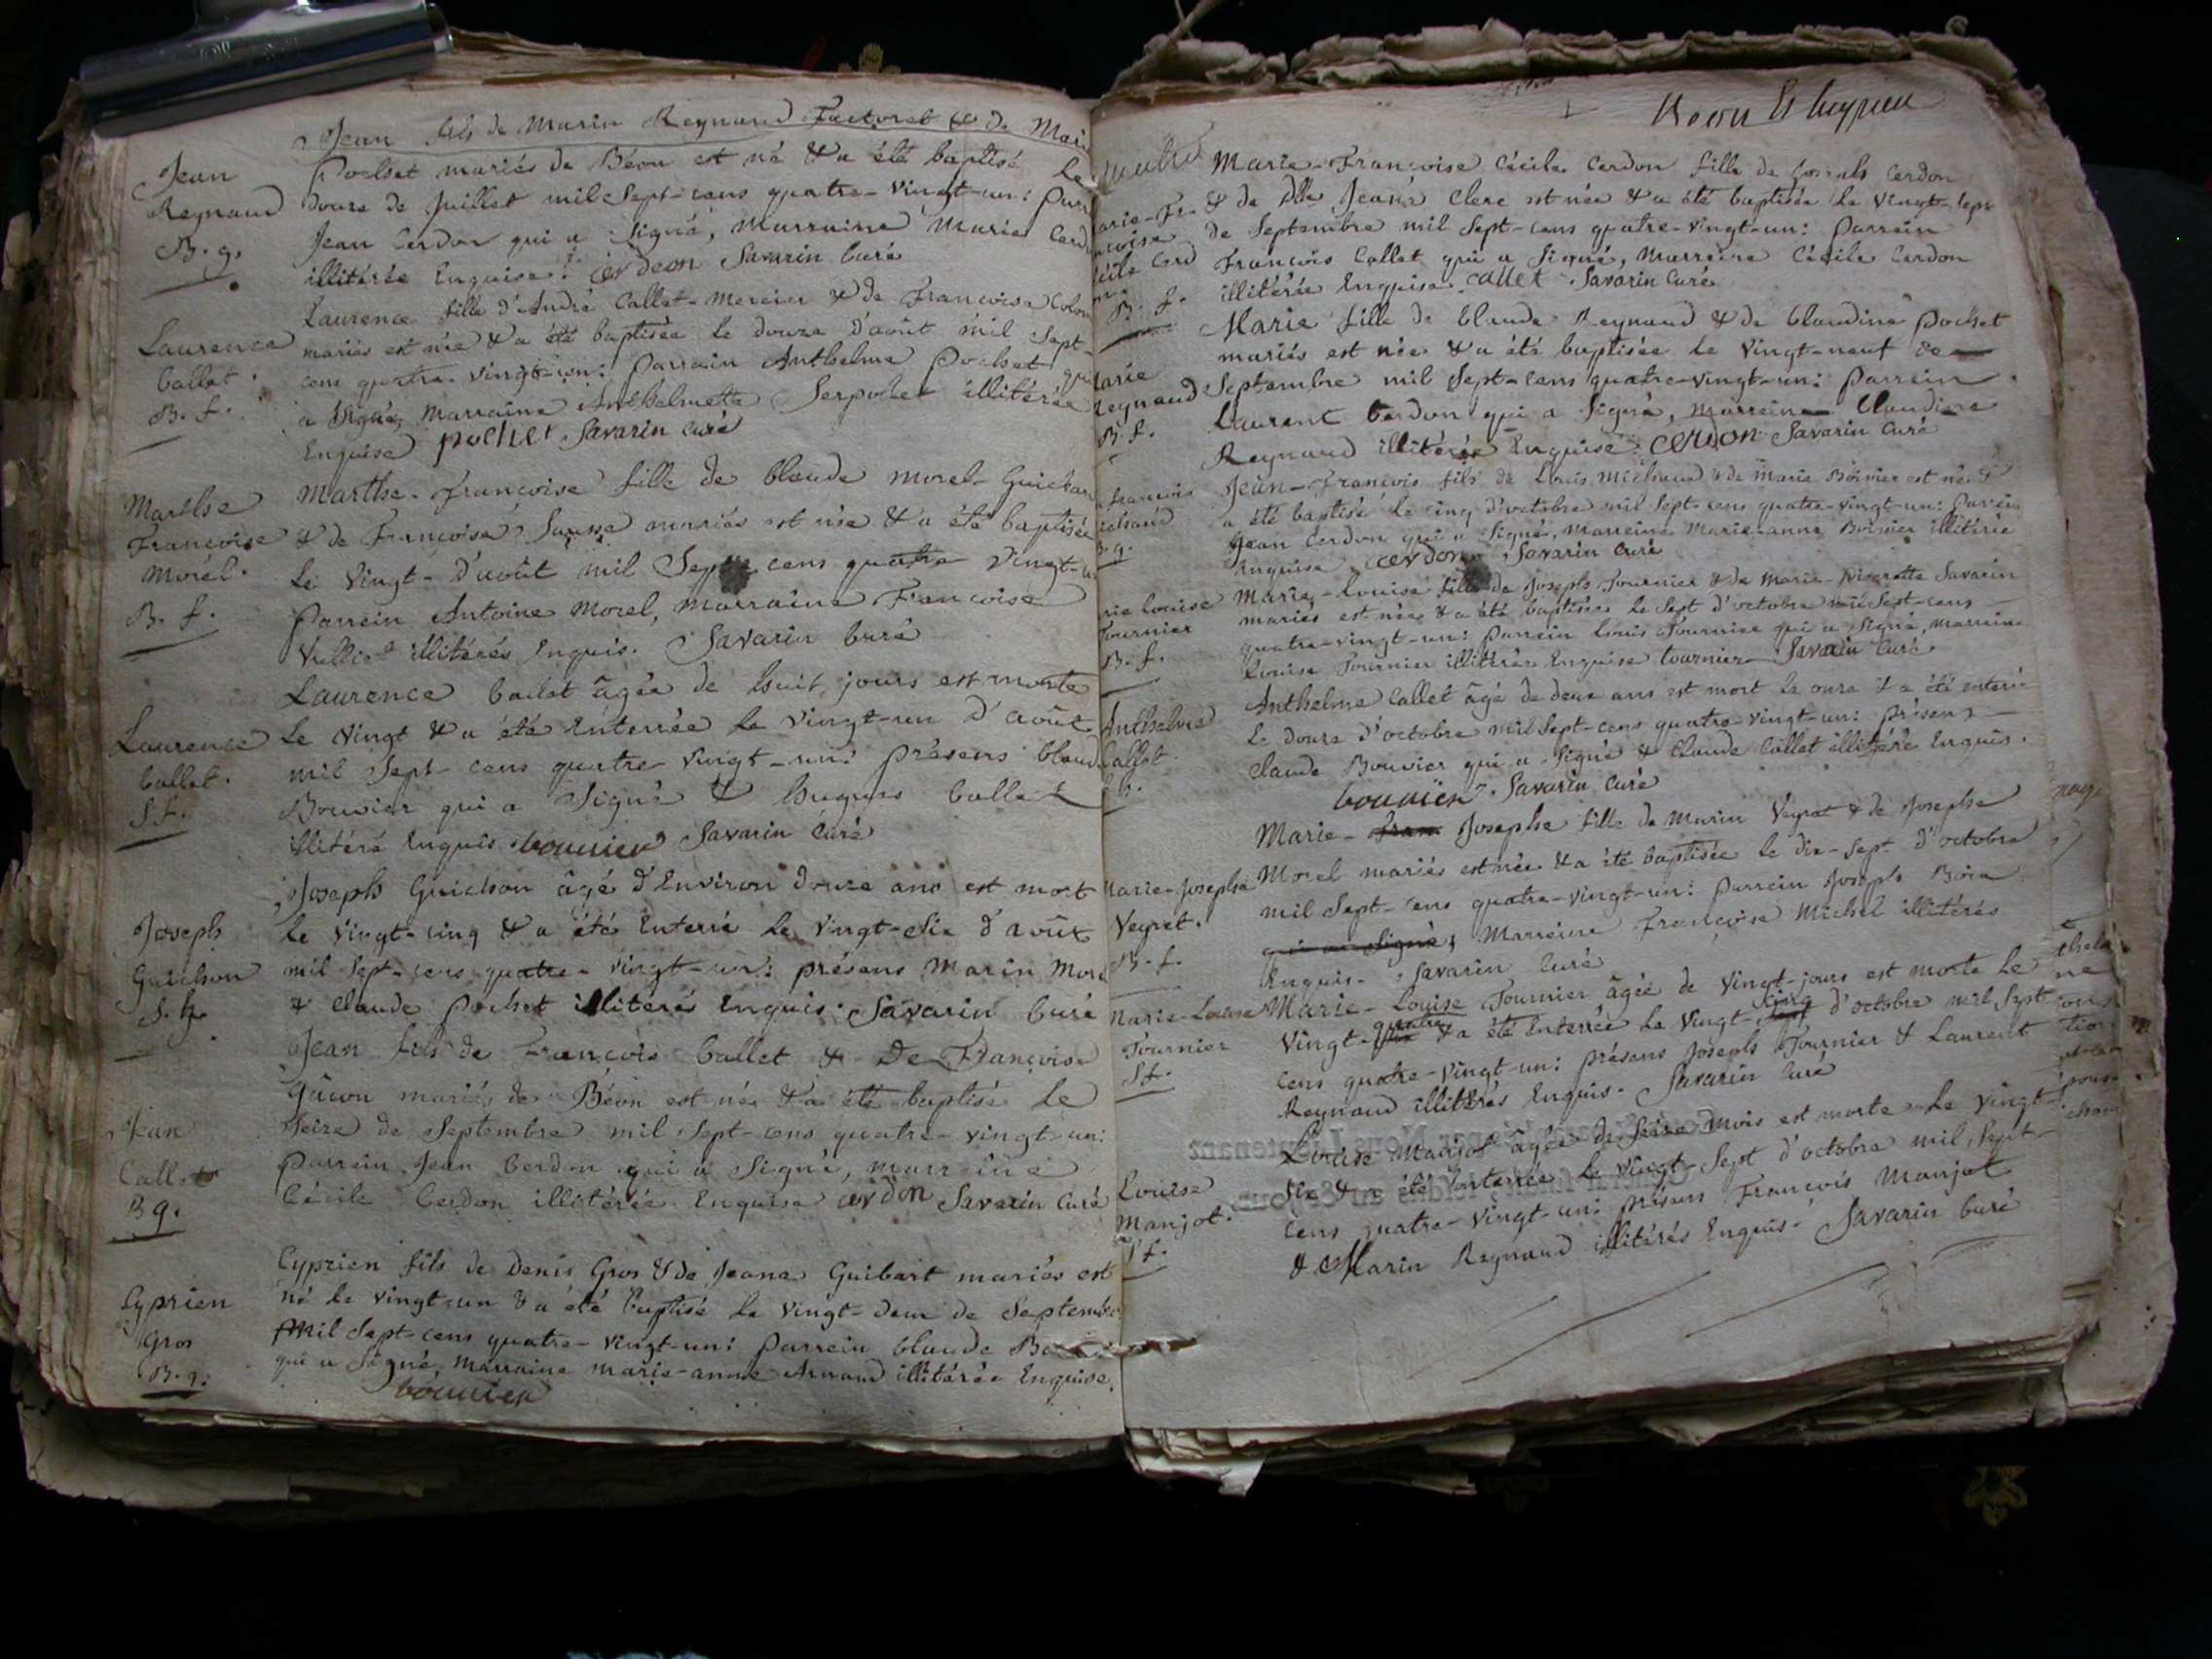 Jean fils de Marin Reynaud Factoret & de Mari
Pochet mariés de Béon est né & a été baptisé le
Jean
Reynaud
B. g.
douze de Juillet mil Sept-cens quatre-vingt-un: Parr
Jean Cerdon qui a Signé, Marraine Marie Cerd
illitérée Enquise: cerdeon Savarin Curé
Laurence
Callet.
B. f.
Laurence fille d'André Callet-Mercier & de Francoise Colom
mariés est née & a été baptisée le douze d'août mil Sept-
cens quatre-vingt-un: Parrain Anthelme Pochet qui
a Signé, Marraine Anthelmette Serpollet illitérée
Enquise pochet Savarin curé
Marthe
Françoise
Morel.
B. f.
Marthe-Françoise fille de Claude Morel-Guichon
& de Francoise mariés est née & a été baptisée
le vingt-d'août mil Sept cens quatre vingt-u
Parrein Antoine Morel, marraine Francoise
illitérés Enquis. Savarin Curé
Laurence
Callet.
S. f.
Laurence Callet âgée de huit jours est morte
le vingt & a été Enterrée le vingt-un d'août
mil Sept-cens quatre-vingt-un: présens Claud
Bouvier qui a Signé & hugues Callet
illitéré Enquis bouuier Savarin Curé
Joseph
Guichon
S. h.
Joseph Guichon âgé d'Environ douze ans est mort
le vingt-cinq & a été Enterré le vingt-Six d'août
mil Sept-cens quatre-vingt-un: présens Marin More
& Claude Pochet illitérés Enquis: Savarin Curé
Jean
Callet
B g.
Jean fils de François Callet & De Françoise
Guion mariés de Béon est né & a été baptisé le
Seize de Septembre mil Sept-cens quatre-vingt-un:
Parrein Jean Cerdon qui a Signé, marreine
Cécile Cerdon illitérée Enquise cerdon Savarin Curé
Cyprien
Gros
B. g.
Cyprien fils de Denis Gros & de Jeane Guibert mariés est
né le vingt-un & a été baptisé le vingt-deux de Septembre
Mil Sept-cens quatre-vingt-un: Parrein Claude Bo
qui a Signé, Marraine marie-anne Arnaud illitérée Enquise.
bouuier
quatre
Marie-Françoise Cécile Cerdon fille de Joseph Cerdon
arie-Fr-
ncoise
écile Cerd
B. f.
& de Dlle Jeane Clerc est née & a été baptisée le vingt-sept
de Septembre mil Sept-cens quatre-vingt-un: Parrein
François Callet qui a Signé, Marreine Cécile Cerdon
illitérée Enquise callet Savarin Curé
Marie fille de Claude Reynaud & de Claudine Pochet
mariés est née & a été baptisée le vingt-neuf de
arie
Reynaud
B. f.
Septembre mil Sept-cens quatre-vingt-un: Parrein
Laurent Cerdon qui a Signé, marreine Claudine
Reynaud illitérée Enquise cerdon Savarin Curé
françois
ichaud
B. g.
Jean-François fils de Louis Michaud & de Marie Boirier est né &
a été baptisé le cinq d'octobre mil Sept-cens quatre-vingt-un: Parrein
Jean Cerdon qui a Signé, Marreine Marie-anne Boirier illitérée
Enquise cerdon Savarin Curé
rie louise
Tournier
B. f.
Marie-Louise fille de Joseph Tournier & de Marie-Pierrette Savarin
mariés est née & a été baptisée le Sept d'octobre mil Sept-cens
quatre-vingt-un: Parrein Louis Tournier qui a Signé, marreine
Louise Tournier illitérée Enquise tournier Savarin Curé
Anthelme
Callet
h.
Anthelme Callet âgé de deux ans est mort le onze & a été enterré
le douze d'octobre mil Sept-cens quatre-vingt-un: présens
Claude Bouvier qui a Signé & Claude Callet illitéré Enquis.
bouuier. Savarin Curé
Marie-Josephe
Veyret.
B. f.
Marie-fran Josephe fille de Marin Veyret & de Josephe
Morel mariés est née & a été baptisée le dix-Sept d'octobre
mil Sept-cens quatre-vingt-un: Parrein Joseph
qui a Signé, Marreine Françoise Michel illitérés
Enquis. Savarin Curé
Marie-Louise
Tournier
S f.
Marie-Louise Tournier âgée de vingt-jours est morte le
vingt-quatre & a été Enterrée le vingt-cinq d'octobre mil Sept
cens quatre-vingt-un: présens Joseph Tournier & Laurent
Reynaud illitérés Enquis. Savarin Curé
Louise
Manjot.
S f.
Louise Manjot âgée de Seize mois est morte le vingt-
Six & a été Enterrée le vingt-Sept d'octobre mil Sept-
cens quatre-vingt-un: présens François Manjot
& Marin Reynaud illitérés Enquis. Savarin Curé